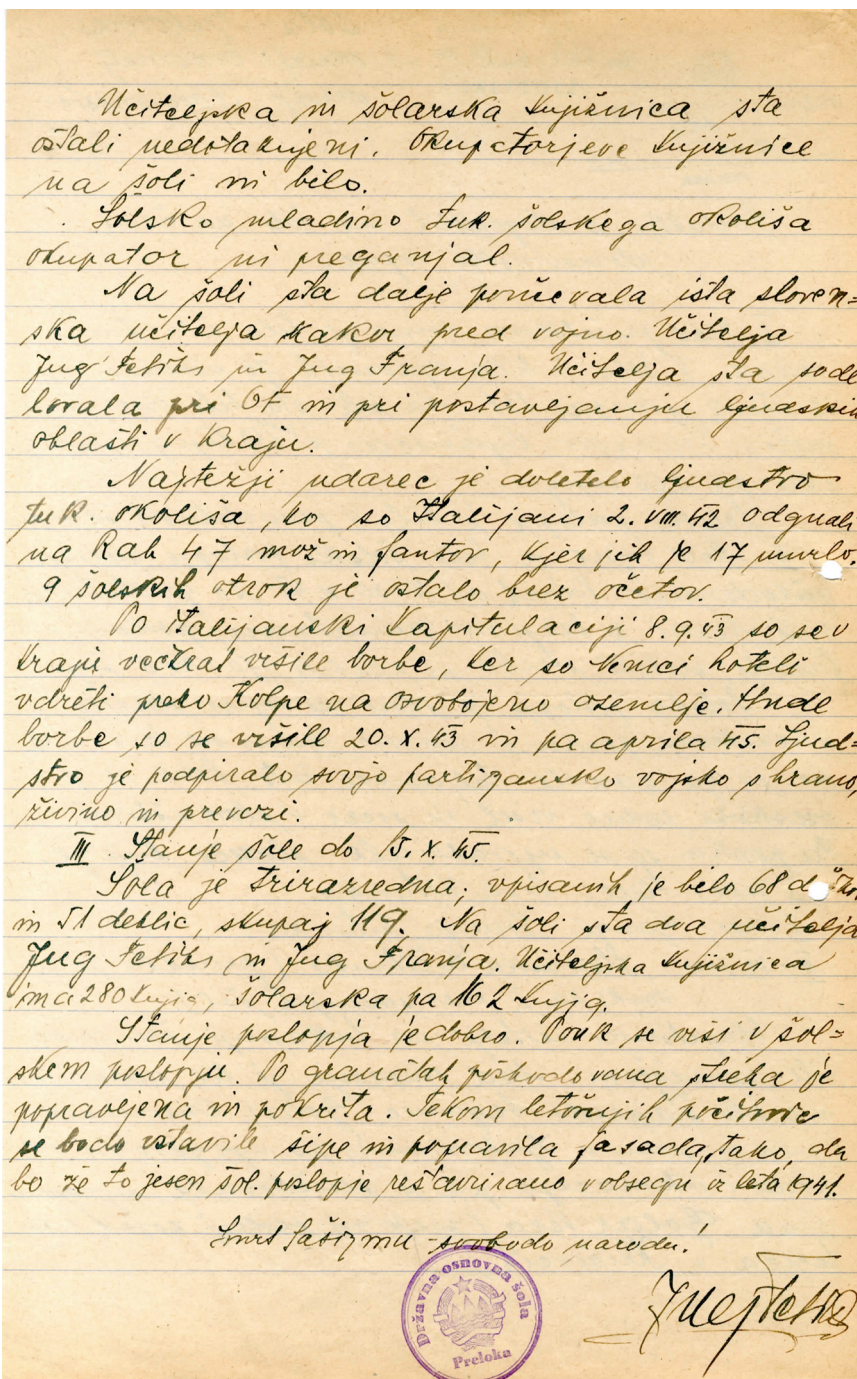 Učiteljska in šolarska knjižnica sta
ostali nedotaknjeni. Okupatorjeve knjižnice
na šoli ni bilo.
Šolsko mladino tuk. šolskega okoliša
okupator ni preganjal.
Na šoli sta dalje poučevala ista sloven=
ska učitelja kakor pred vojno. Učitelja
Jug Feliks in Jug Franja. Učitelja sta sode
lovala pri OF in pri postavljanju ljudskih
oblasti v kraju.
Najtežji udarec je doletelo ljudstvo
tuk. okoliša, ko so Italijani 2. VIII. 42 odgnali
na Rab 47 mož in fantov, kjer jih je 17 umrlo.
9 šolskih otrok je ostalo brez očetov.
Po italijanski kapitulaciji 8. 9. 43 so se v
kraju večkrat vršile borbe, ker so Nemci hoteli
vdreti preko Kolpe na osvobojeno ozemlje. Hude
borbe so se vršile 20. X. 43 in pa aprila 45. Ljud=
stvo je podpiralo svojo partizansko vojsko s hrano,
živino in prevozi.
III. Stanje šole do 15. X. 45.
Šola je trirazredna; vpisanih je bilo 68
in 51 deklic, skupaj 119. Na šoli sta dva učitelja
Jug Feliks in Jug Franja. Učiteljska knjižnica
ima 280 knjig, šolarska pa 162 knjig.
Stanje poslopja je dobro. Pouk se vrši v šol=
skem poslopju. Po granatah poškodovana streha je
popravljena in pokrita. Tekom letošnjih počitnic
se bodo vstavile šipe in popravila fasada, tako, da
bo že to jesen šol. poslopje restavrirano v obsegu iz leta 1941.
Smrt fašizmu - svobodo narodu!
Jug Feliks
Državna osnovna šola
Preloka